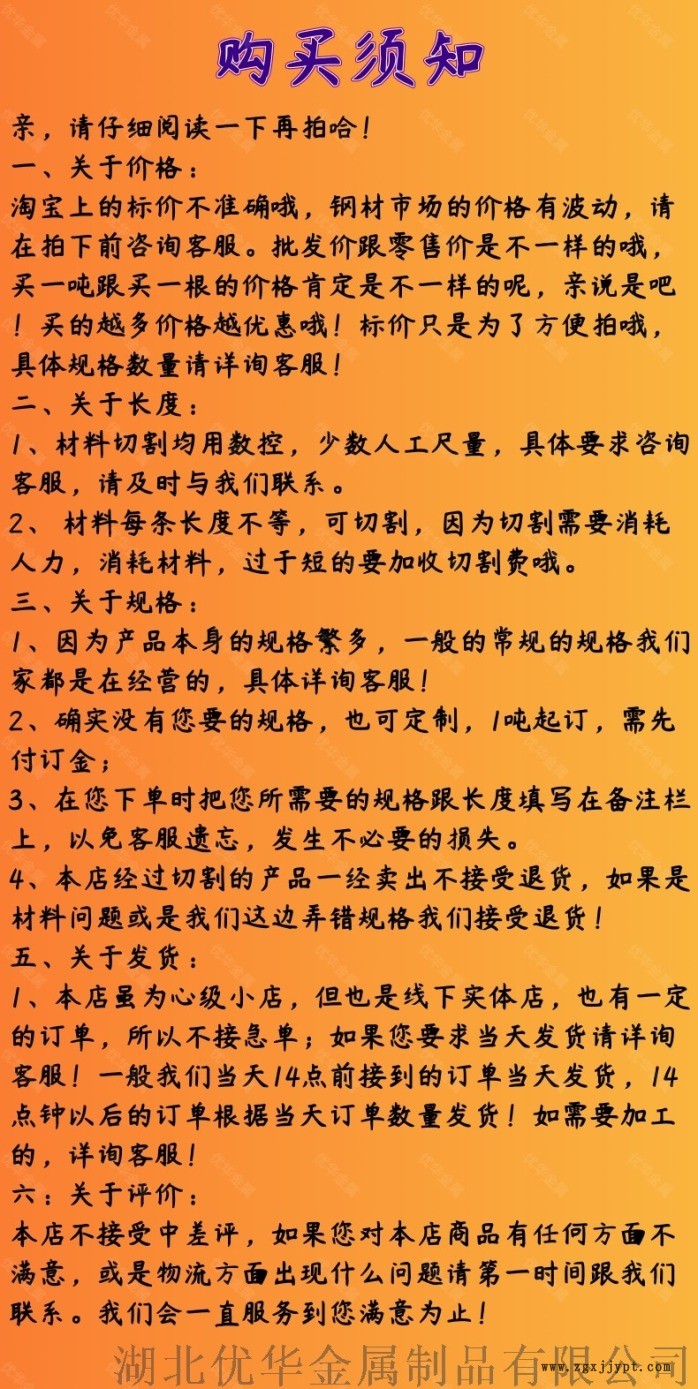 购买须知
亲，请仔细阅读一下再拍哈！
一、关于价格：
淘宝上的标价不准确哦，钢材市场的价格有波动，请
在拍下前咨询客服。批发价跟零售价是不一样的哦，
买一吨跟买一根的价格肯定是不一样的呢，亲说是吧
！买的越多价格越优惠哦！标价只是为了方便拍哦，
具体规格数量请详询客服！
二、关于长度：
1、材料切割均用数控，少数人工尺量，具体要求咨询
客服，请及时与我们联系。
2、 材料每条长度不等，可切割，因为切割需要消耗
人力，消耗材料，过于短的要加收切割费哦。
三、关于规格：
1、因为产品本身的规格繁多，一般的常规的规格我们
家都是在经营的，具体详询客服！
2、确实没有您要的规格，也可定制，1吨起订，需先
付订金；
3、在您下单时把您所需要的规格跟长度填写在备注栏
上，以免客服遗忘，发生不必要的损失。
4、本店经过切割的产品一经卖出不接受退货，如果是
材料问题或是我们这边弄错规格我们接受退货！
五、关于发货：
1、本店虽为心级小店，但也是线下实体店，也有一定
的订单，所以不接急单；如果您要求当天发货请详询
客服！一般我们当天14点前接到的订单当天发货，14
点钟以后的订单根据当天订单数量发货！如需要加工
的，详询客服！
六：关于评价：
本店不接受中差评，如果您对本店商品有任何方面不
满意，或是物流方面出现什么问题请第一时间跟我们
联系。我们会一直服务到您满意为止！
湖北优华金属制品有限公司
www.zgxjjypt.com